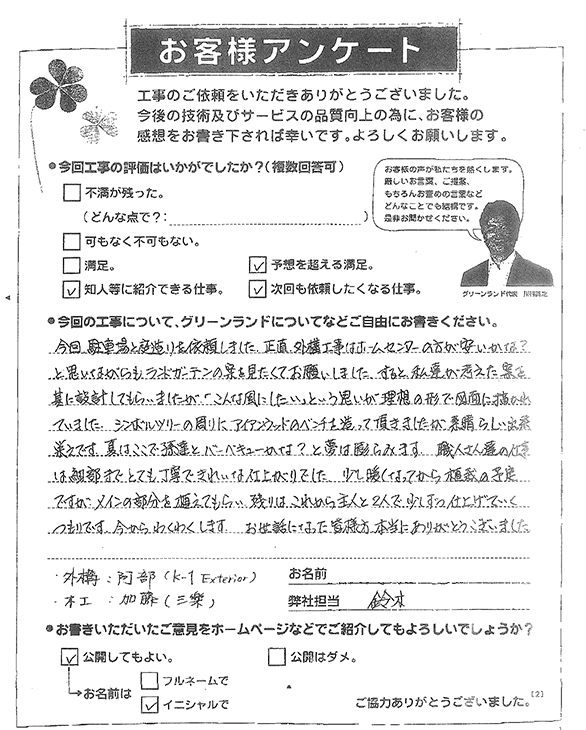 お客様アンケート
工事のご依頼をいただきありがとうございました。
今後の技術及びサービスの品質向上の為に、お客様の
感想をお書き下されば幸いです。よろしくお願いします。
●今回工事の評価はいかがでしたか?(複数回答可)
不満が残った。
(どんな点で?: )
可もなく不可もない。
満足。
✓ 予想を超える満足。
✓ 知人等に紹介できる仕事。
✓ 次回も依頼したくなる仕事。
お客様の声が私たちを熱くします。
厳しいお言葉、ご提案、
もちろんお誉めの言葉など
どんなことでも結構です。
是非お聞かせください。
グリーンランド代表
●今回の工事について、グリーンランドについてなどご自由にお書きください。
今回、駐車場と庭造りを依頼しました。正直、外構工事はホームセンターの方が安いかな?
と思いながらもランドガーデンの案を見たくてお願いしました。すると私達が考えた案を
基に設計してもらいましたが「こんな風にしたい」という思いが理想の形で図面に描かれ
ていました。シンボルツリーの周りにアイアンウッドのベンチも造って頂きましたが素晴らしい出来
栄えです。夏はここで孫達とバーベキューかな?と夢は膨らみます。職人さん達の仕事
は細部までとても丁寧できれいな仕上がりでした。少し暖くなってから植栽の予定
ですが、メインの部分を植えてもらい、残りはこれから主人と2人で少しずつ仕上げていく
つもりです。今からわくわくします。お世話になった皆様方、本当にありがとうございました
・外構:阿部(K-1 Exterior)
・木工:加藤(三樂)
お名前
弊社担当 鈴木
●お書きいただいたご意見をホームページなどでご紹介してもよろしいでしょうか?
✓ 公開してもよい。
公開はダメ。
お名前は
フルネームで
✓ イニシャルで
ご協力ありがとうございました。
[2]